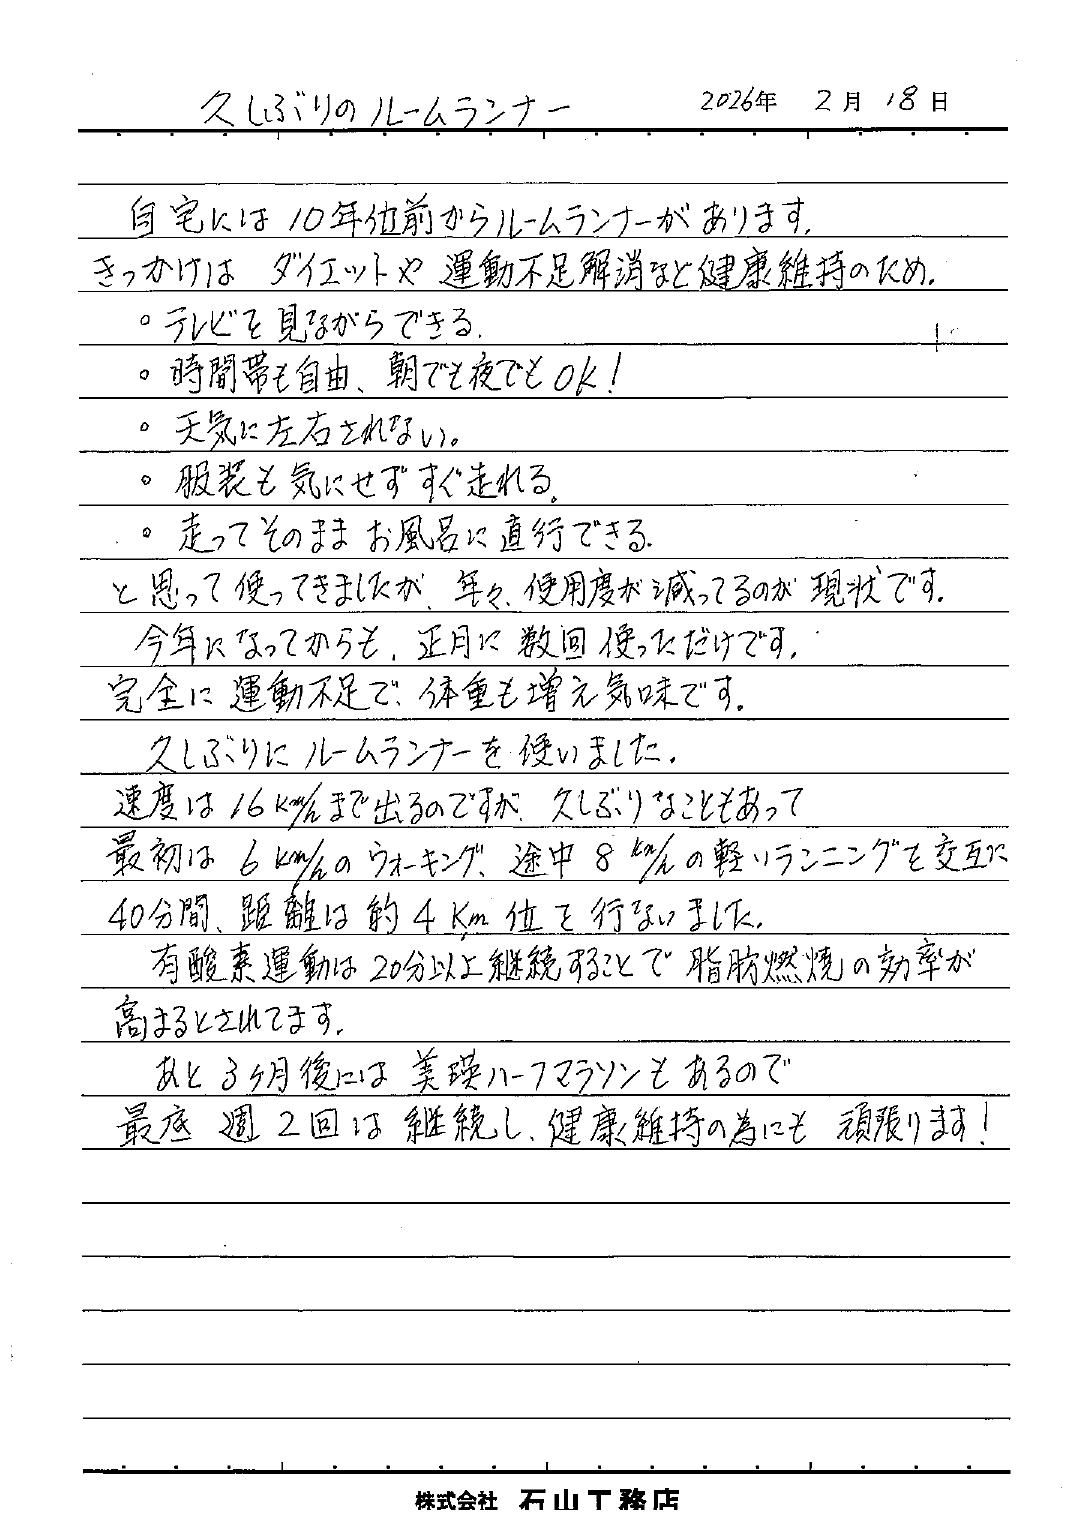 久しぶりのルームランナー 2026年 2月 18日
自宅には10年位前からルームランナーがあります。
きっかけは ダイエットや 運動不足解消など健康維持のため。
。テレビを見ながらできる。
。時間帯も自由、朝でも夜でもOK!
。天気に左右されない。
。服装も気にせず すぐ走れる。
。走ってそのまま お風呂に直行できる。
と思って使ってきましたが、年々、使用度が減ってるのが現状です。
今年になってからも、正月に数回使っただけです。
完全に運動不足で、体重も増え気味です。
久しぶりに ルームランナーを使いました。
速度は16km/hまで出るのですが、久しぶりなこともあって
最初は 6km/hのウォーキング、途中8km/hの軽いランニングを交互に
40分間、距離は約4km位を行ないました。
有酸素運動は20分以上継続することで 脂肪燃焼の効率が
高まるとされてます。
あと3ヶ月後には 美瑛ハーフマラソンもあるので
最底 週2回は継続し、健康維持の為にも 頑張ります!
株式会社 石山工務店